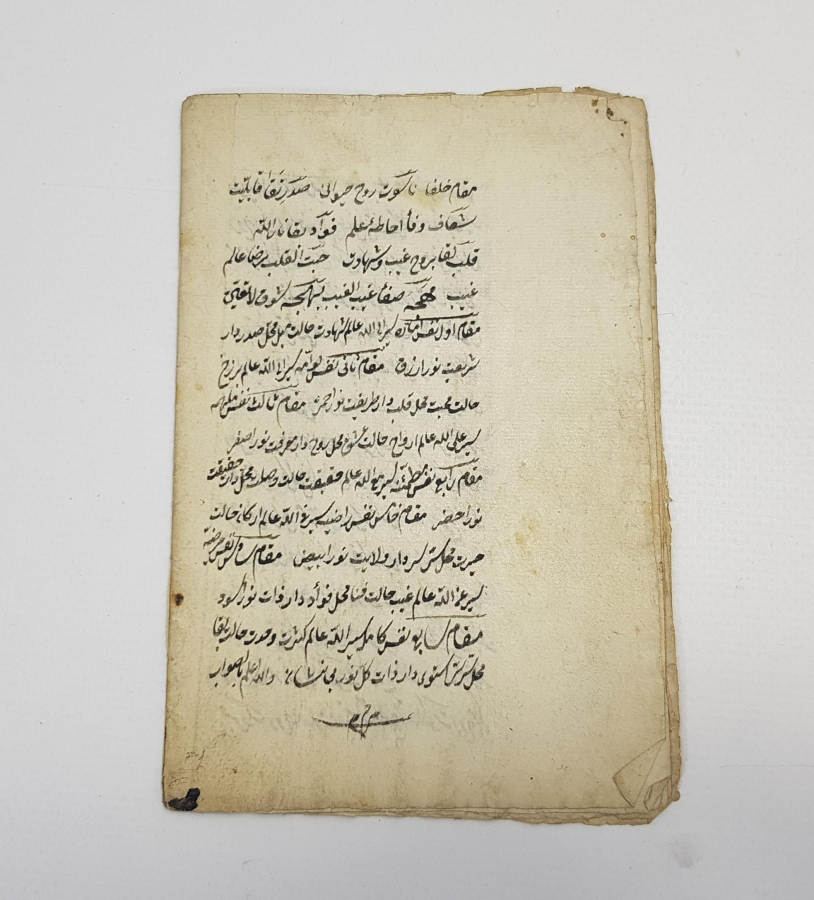 مقام خلفا ناسوت روح حیوانی صدر بقا قابلیت
شغاف وفا احاطهٔ علم فواد بقا نار الله
قلب لقا بروح غیب و شهادت حبت القلب رضا عالم
غیب مهجه صفا غیب الغیب
مقام اول نفس اماره سیر الی الله عالم شهادت حالت میل محل صدر دار
شریعت نور ازرق مقام ثانی نفس لوامه سیر الله عالم برزخ
حالت محبت محل قلب دار طریقت نور احمر مقام ثالث نفس ملهمه
سیر علی الله عالم ارواح حالت عشق محل روح دار معرفت نور اصفر
مقام رابع نفس مطمئنه سیر مع الله عالم حقیقت حالت وصلت محل دار حقیقت
نور اخضر مقام خامس نفس راضیه سیر فی الله عالم ارکان حالت
حیرت محل سر سر دار ولایت نور ابیض مقام سادس نفس مرضیه
سیر عن الله عالم غیب حالت فنا محل فواد دار ذات نور اسود
مقام سابع نفس کامله سیر الله عالم کثرت وحدت حالت بقا
محل سر سر دار ذات کل نور بی نشان والله اعلم بالصواب
م م م